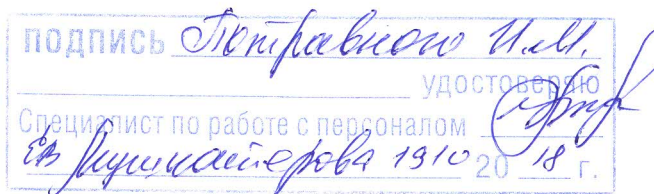 ПОДПИСЬ Потравного И.М.
удостоверяю
Специалист по работе с персоналом
ЕВ 1910 20 18 г.